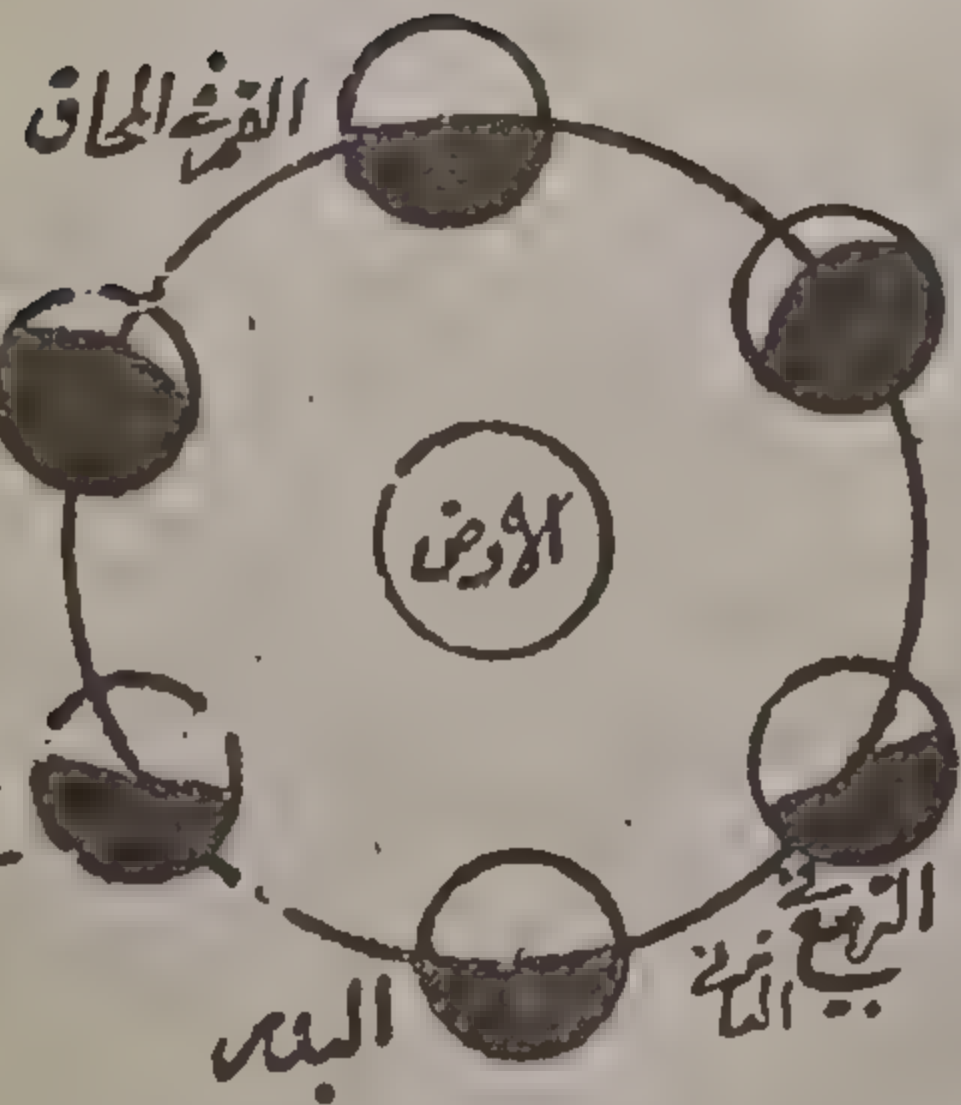 القمر في المحاق
الارض
التربيع
الثاني
البدر